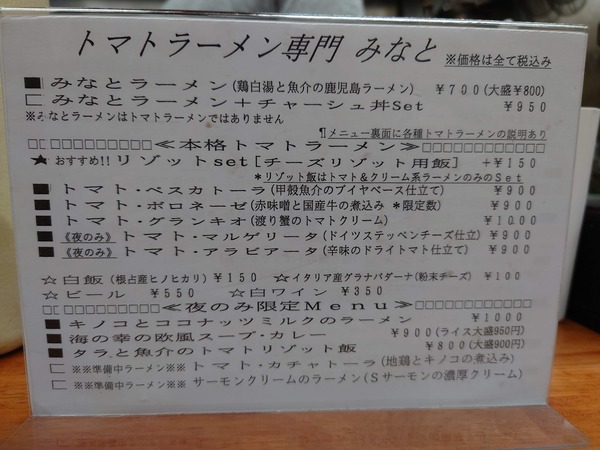 トマトラーメン専門 みなと ※価格は全て税込み
■みなとラーメン(鶏白湯と魚介の鹿児島ラーメン) ¥700(大盛¥800)
□みなとラーメン＋チャーシュ丼Set ¥950
※みなとラーメンはトマトラーメンではありません
¶メニュー裏面に各種トマトラーメンの説明あり
□□□□□□□□□□≪本格トマトラーメン≫□□□□□□□□□□□
★おすすめ!!リゾットset[チーズリゾット用飯] ＋¥150
＊リゾット飯はトマト&クリーム系ラーメンのみのSet
■トマト・ペスカトーラ(甲殻魚介のブイヤベース仕立て) ¥900
■トマト・ボロネーゼ(赤味噌と国産牛の煮込み ＊限定数) ¥900
■トマト・グランキオ(渡り蟹のトマトクリーム) ¥1000
■《夜のみ》トマト・マルゲリータ(ドイツステッペンチーズ仕立) ¥900
■《夜のみ》トマト・アラビアータ(辛味のドライトマト仕立て) ¥900
☆白飯(根占産ヒノヒカリ)¥150 ☆イタリア産グラナパダーナ(粉末チーズ) ¥100
☆ビール ¥550 ☆白ワイン ¥350
□□□□□□□□□□≪夜のみ限定Menu≫□□□□□□□□□□□
■キノコとココナッツミルクのラーメン ¥1000
■海の幸の欧風スープ・カレー ¥900(ライス大盛950円)
■タラと魚介のトマトリゾット飯 ¥800(大盛900円)
□※※準備中ラーメン※※ トマト・カチャトーラ(地鶏とキノコの煮込み)
□※※準備中ラーメン※※ サーモンクリームのラーメン(Sサーモンの濃厚クリーム)